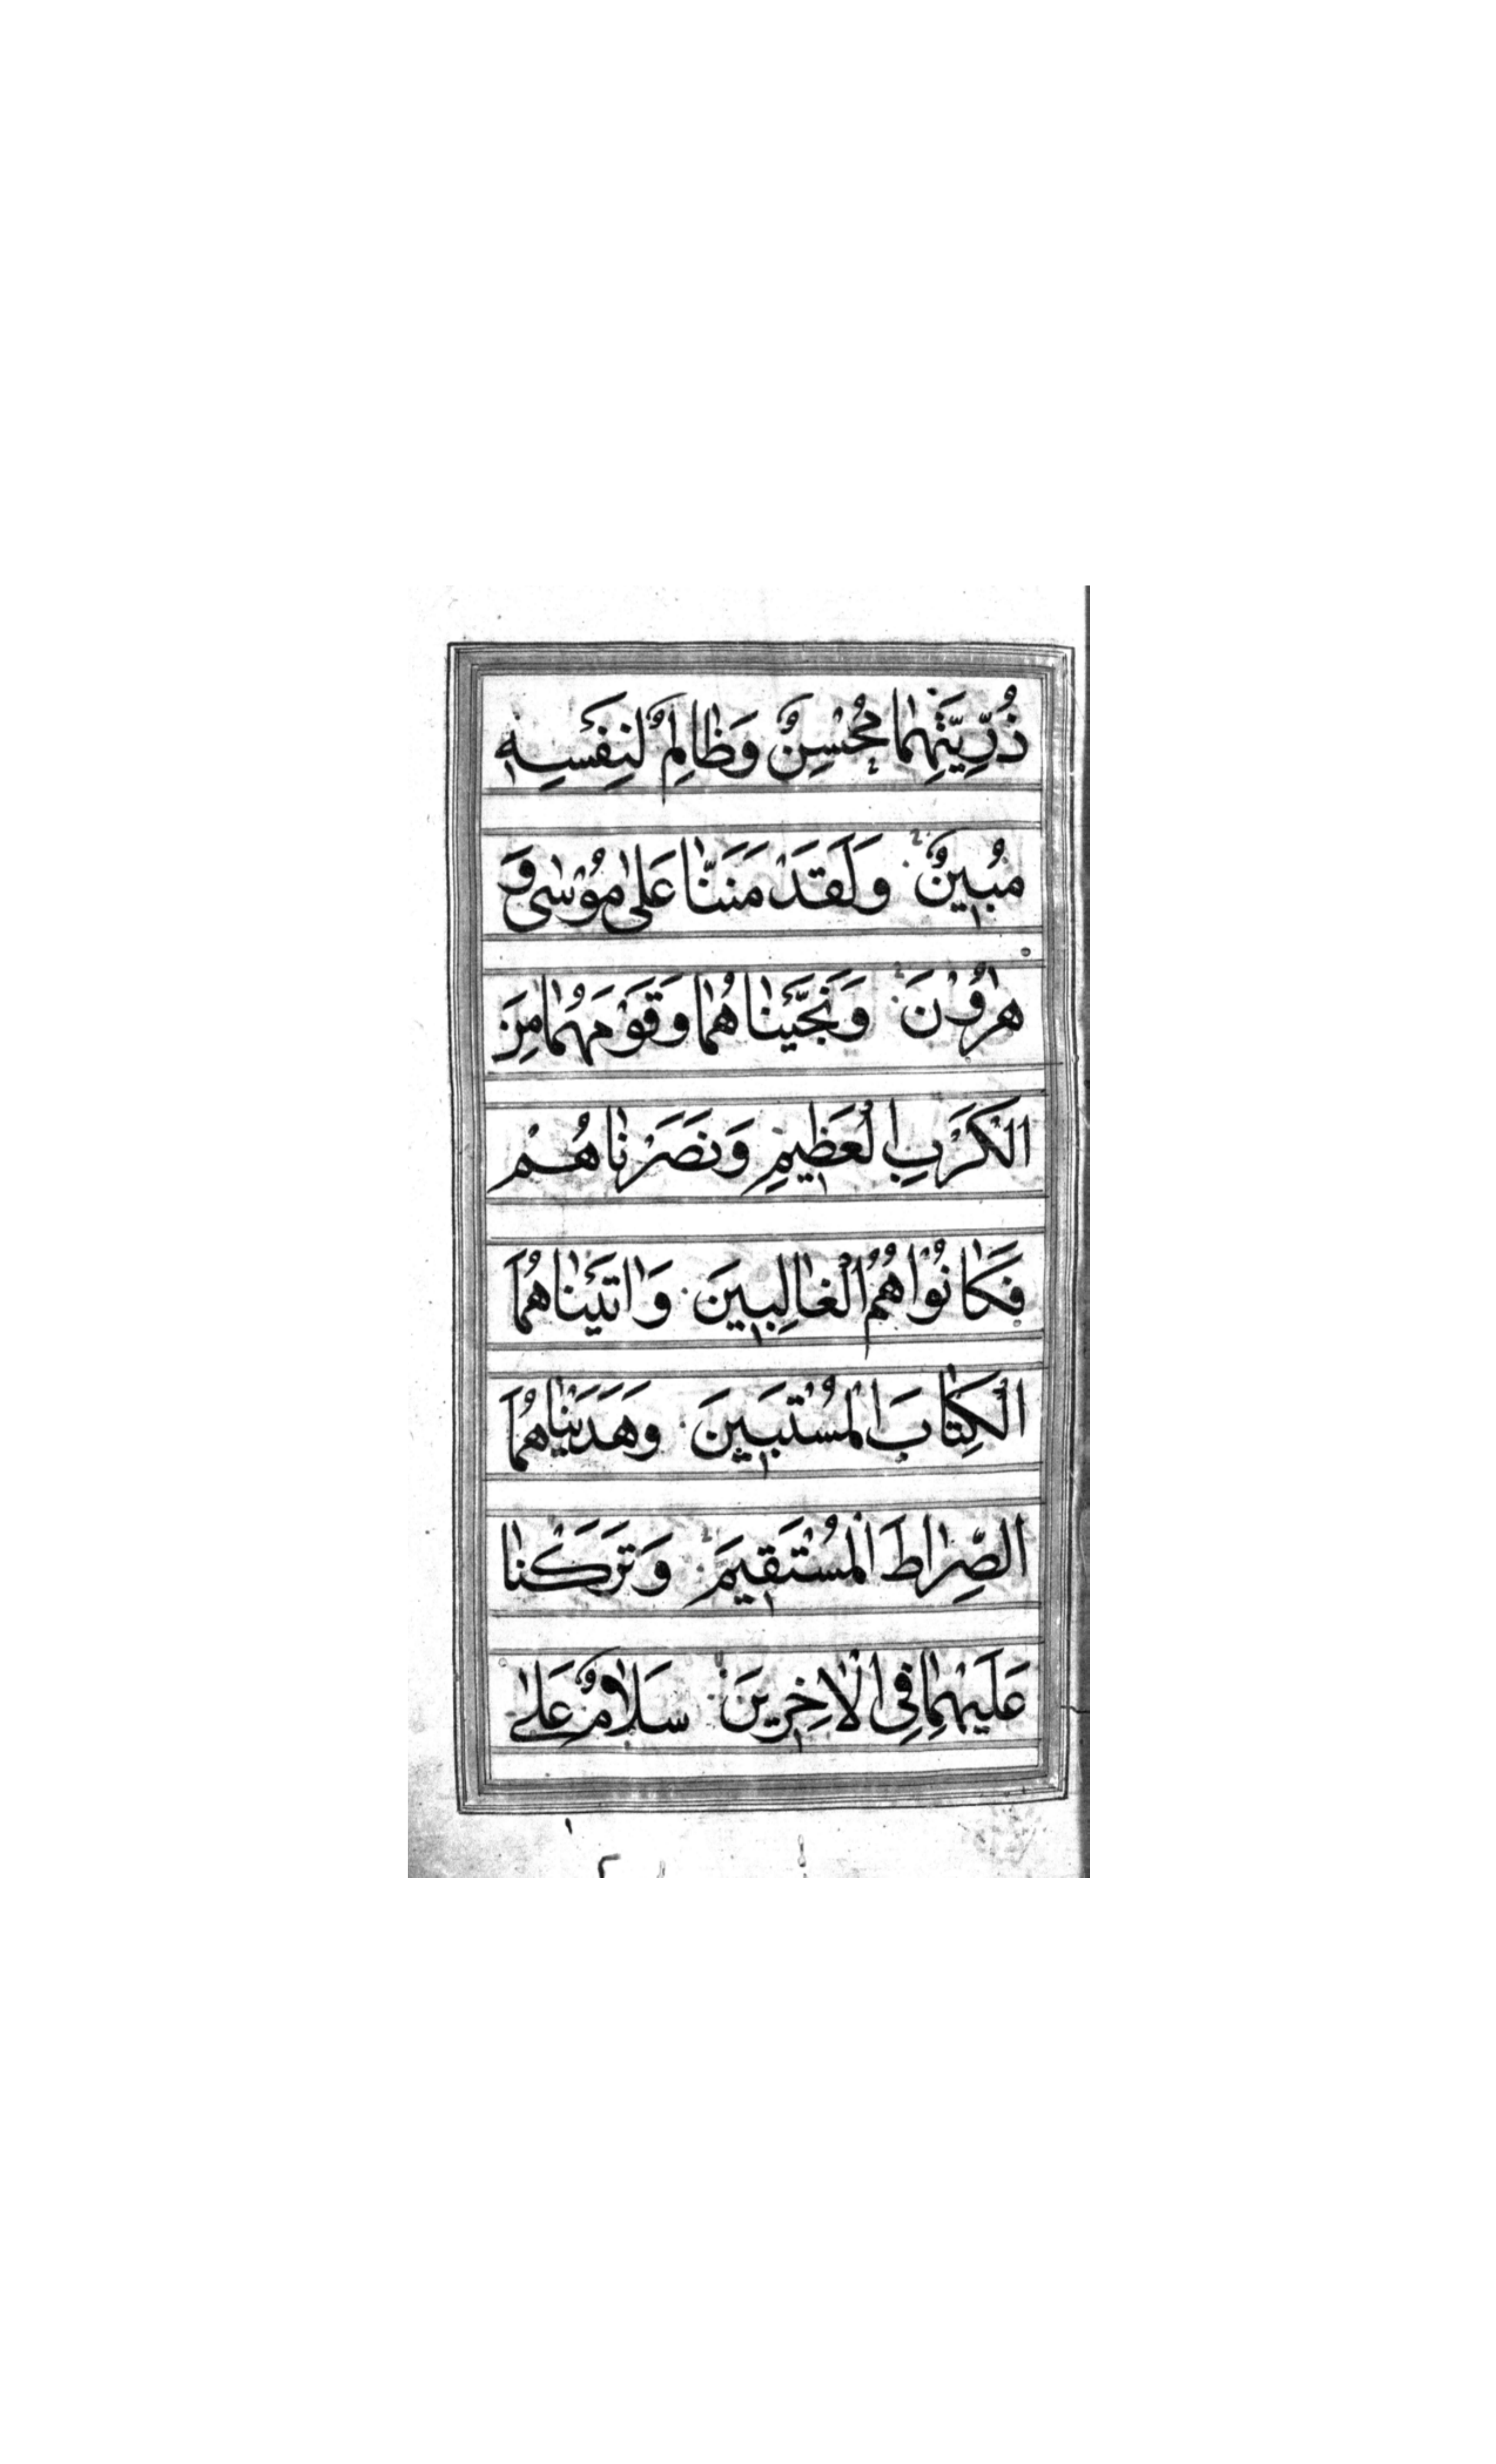 ذُرِّيَّتِهِمَا مُحْسِنٌ وَظَالِمٌ لِنَفْسِهِ
مُبِينٌ وَلَقَدْ مَنَنَّا عَلَىٰ مُوْسٰى وَ
هٰرُوْنَ وَنَجَّيْنَاهُمَا وَقَوْمَهُمَا مِنَ
الْكَرْبِ الْعَظِيمِ وَنَصَرْنَاهُمْ
فَكَانُوْا هُمُ الْغَالِبِينَ وَاٰتَيْنَاهُمَا
الْكِتَابَ الْمُسْتَبِينَ وَهَدَيْنَاهُمَا
الصِّرَاطَ الْمُسْتَقِيمَ وَتَرَكْنَا
عَلَيْهِمَا فِي الْاٰخِرِينَ سَلَامٌ عَلٰى